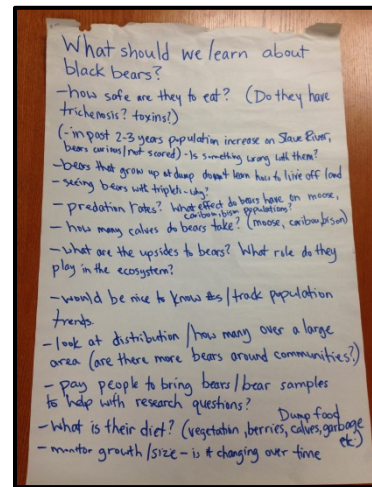 What should we learn about
black bears?
- how safe are they to eat? (Do they have
trichenosis? toxins?)
(- in past 2-3 years population increase on Slave River,
bears curious/not scared) - Is something wrong with them?
- bears that grow up at dump doesn't learn how to live off land
- seeing bears with triplets - why?
- predation rates? What effect do bears have on moose,
caribou, bison populations?
- how many calves do bears take? (moose, caribou, bison)
- what are the upsides to bears? What role do they
play in the ecosystem?
- would be nice to know #s/track population
trends.
- look at distribution/how many over a large
area (are there more bears around communities?)
- pay people to bring bears/bear samples
to help with research questions?
Dump food
- What is their diet? (vegetation, berries, calves, garbage
etc.)
- monitor growth/size - is it changing over time